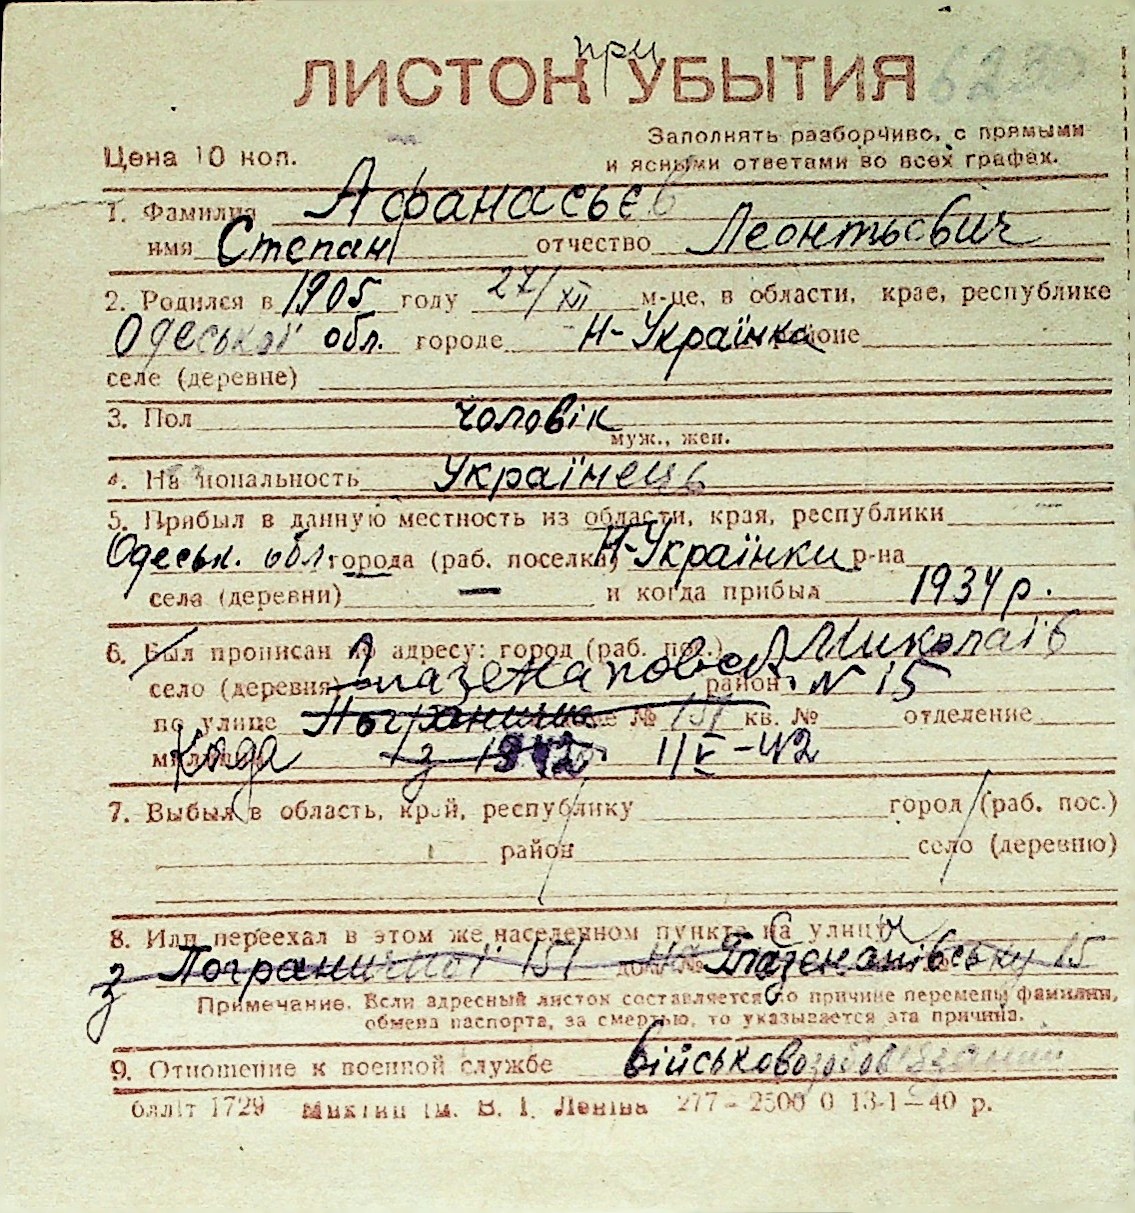 при
ЛИСТОК УБЫТИЯ 6200
Заполнять разборчиво, с прямыми
Цена 10 коп. и ясными ответами во всех графах.
1. Фамилия Афанасьєв
имя Степан отчество Леонтьевич
2. Родился в 1905 году 27/XII м-це, в области, крае, республике
Одеської обл. городе Н-Українка районе
селе (деревне)
3. Пол чоловік
муж., жен.
4. Национальность Українець
5. Прибыл в данную местность из области, края, республики
Одеськ. обл города (раб. поселка) Н-Українки р-на
села (деревни) — и когда прибыл 1934 р.
6. Был прописан по адресу: город (раб. пос.) Миколаїв
село (деревня) район № 15
по улице Погранична № 151 кв. № отделение
милиции Када з 1942 11/V-42
7. Выбыл в область, край, республику город (раб. пос.)
район село (деревню)
8. Или переехал в этом же населенном пункте на улицу
з Пограничної 151 дом № 15
Примечание. Если адресный листок составляется по причине перемены фамилии,
обмена паспорта, за смертью, то указывается эта причина.
9. Отношение к военной службе військовозобовязаний
бліт 1729 ім. В. І. Леніна 277-2500 0 13-1-40 р.